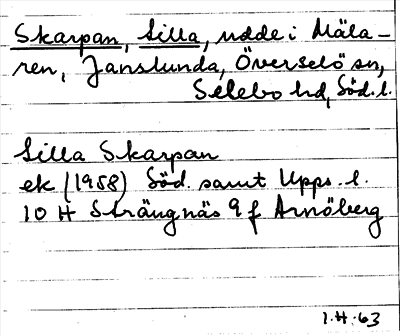 Skarpan, Lilla, udde i Mäla-
ren, Janslunda, Överselö sn,
Selebo hd, Söd. l.
Lilla Skarpan
ek (1958) Söd. samt Upps. l.
10 H Strängnäs 9 f Arnöberg
I.H.:63